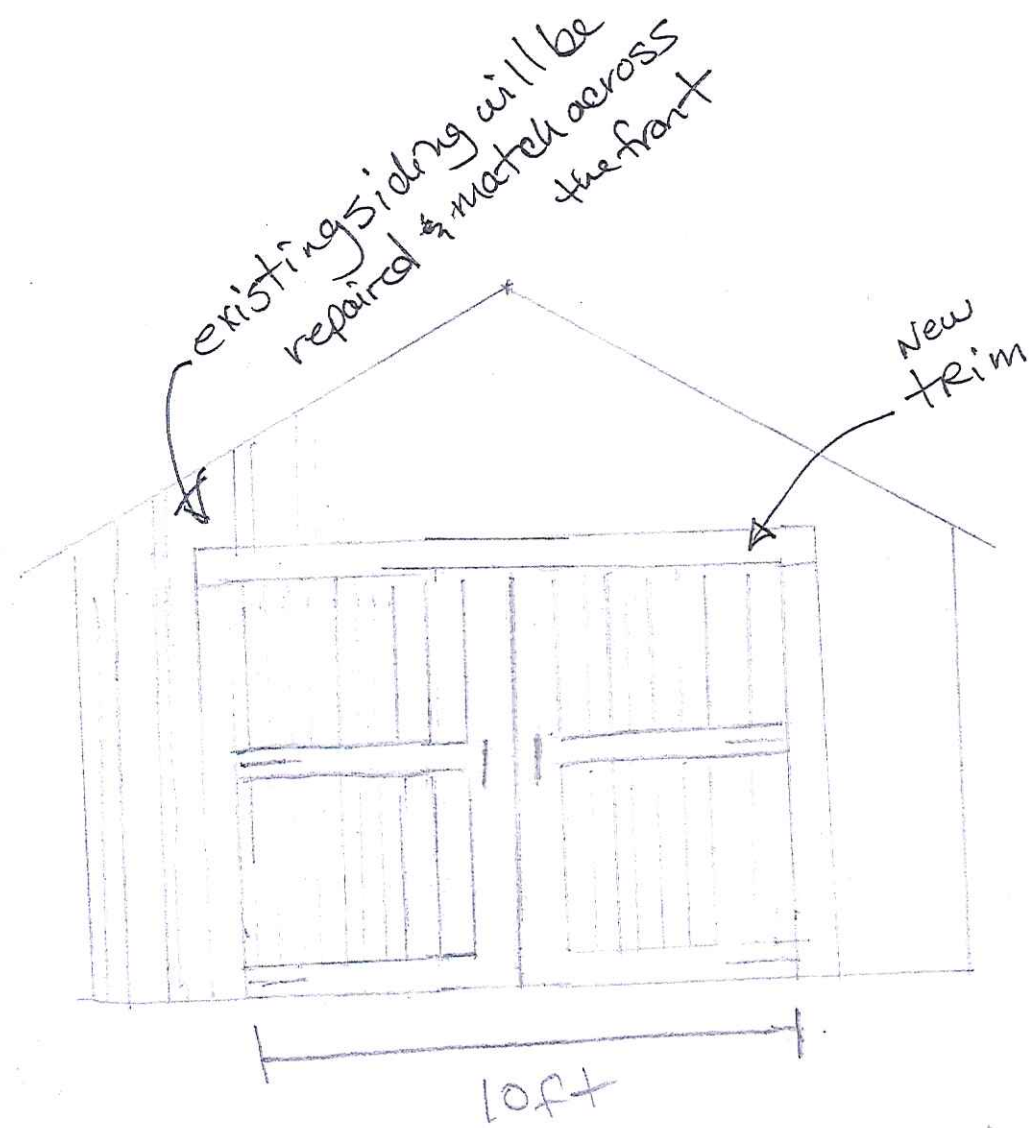 existing siding will be
repaired & match across
the front
New
tRim
10ft